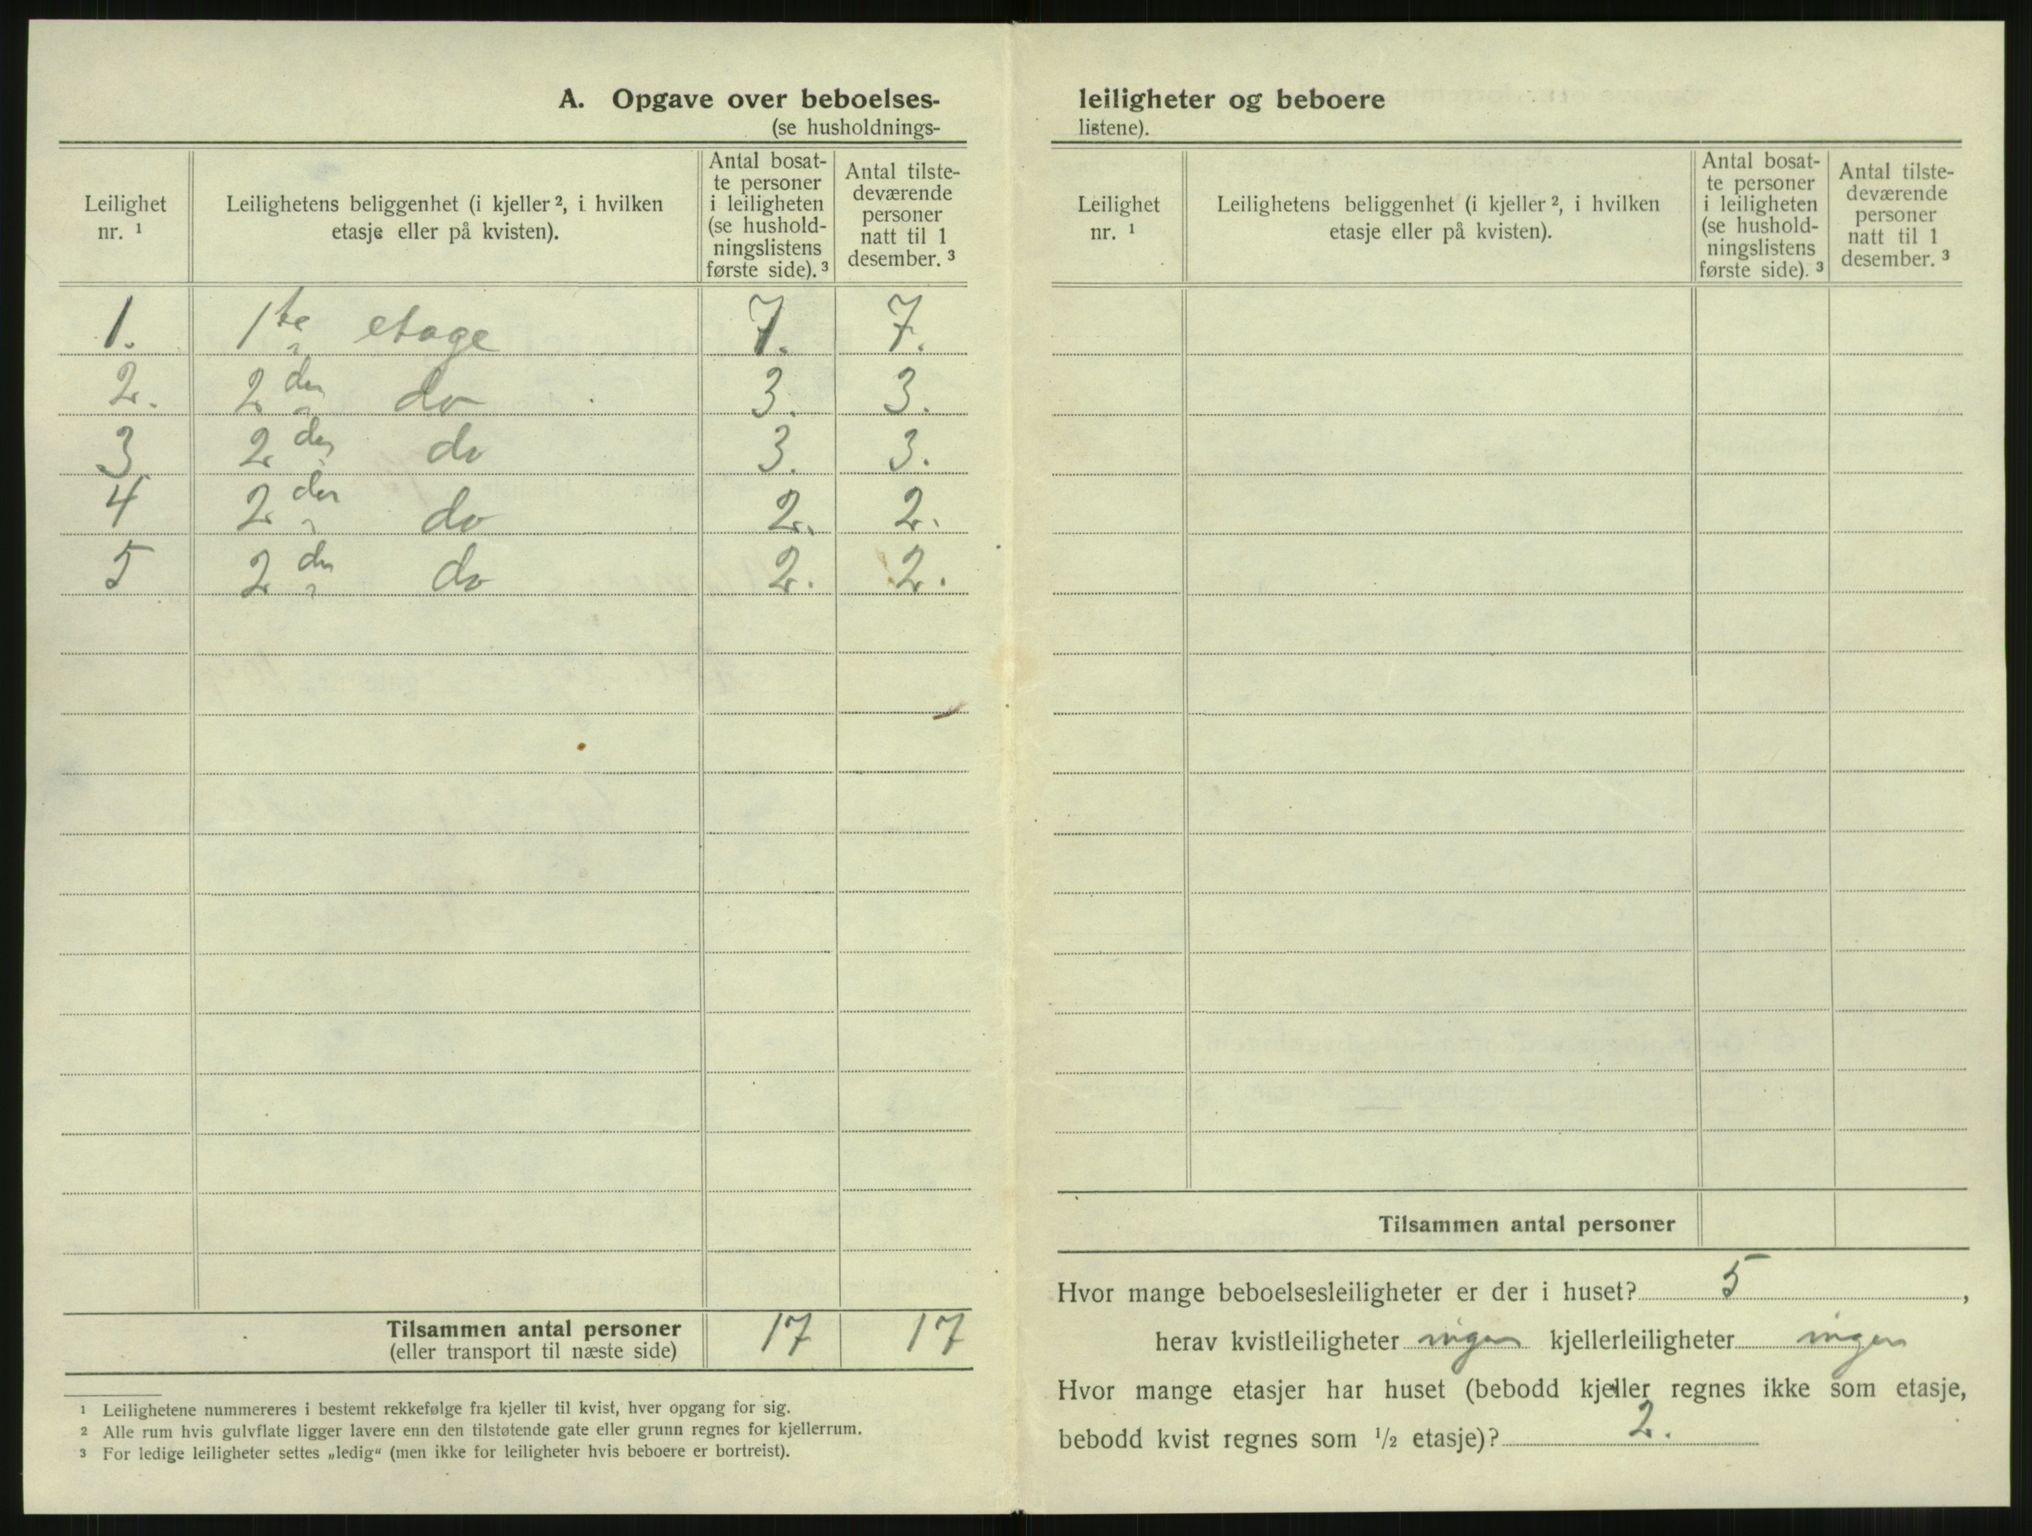 A. Opgave over beboelses-
(se husholdnings-
Leilighet nr. ¹
Leilighetens beliggenhet (i kjeller ², i hvilken etasje eller på kvisten).
Antal bosat-
te personer
i leiligheten
(se hushold-
ningslistens
første side). ³
Antal tilste-
deværende
personer
natt til 1
desember. ³
1. 1te etage 7. 7.
2. 2den do 3. 3.
3 2den do 3. 3.
4 2den do 2. 2.
5 2den do 2. 2.
Tilsammen antal personer 17 17
(eller transport til næste side)
¹ Leilighetene nummereres i bestemt rekkefølge fra kjeller til kvist, hver opgang for sig.
² Alle rum hvis gulvflate ligger lavere enn den tilstøtende gate eller grunn regnes for kjellerrum.
³ For ledige leiligheter settes „ledig“ (men ikke for leiligheter hvis beboere er bortreist).
leiligheter og beboere
listene).
Leilighet nr. ¹
Leilighetens beliggenhet (i kjeller ², i hvilken etasje eller på kvisten).
Antal bosat-
te personer
i leiligheten
(se hushold-
ningslistens
første side). ³
Antal tilste-
deværende
personer
natt til 1
desember. ³
Tilsammen antal personer
Hvor mange beboelsesleiligheter er der i huset? 5,
herav kvistleiligheter ingen kjellerleiligheter ingen
Hvor mange etasjer har huset (bebodd kjeller regnes ikke som etasje,
bebodd kvist regnes som ½ etasje)? 2.